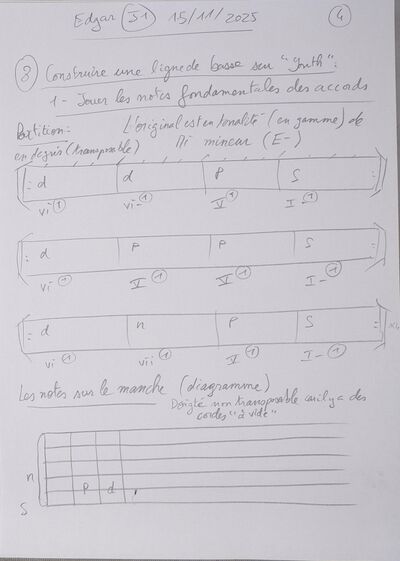 Edgar J1 15/11/2025 4
8 Construire une ligne de basse sur "Youth":
1 - Jouer les notes fondamentales des accords
Partition: L'original est en tonalité (en gamme) de
en degrés (transposable) Mi mineur (E-)
d d P S
vi 1 vi- 1 V 1 I- 1
d P P S
vi 1 V 1 V 1 I- 1
d n P S
vi 1 vii 1 V 1 I- 1
Les notes sur le manche (diagramme)
Doigté non transposable car il y a des
cordes "à vide"
n
P d
S